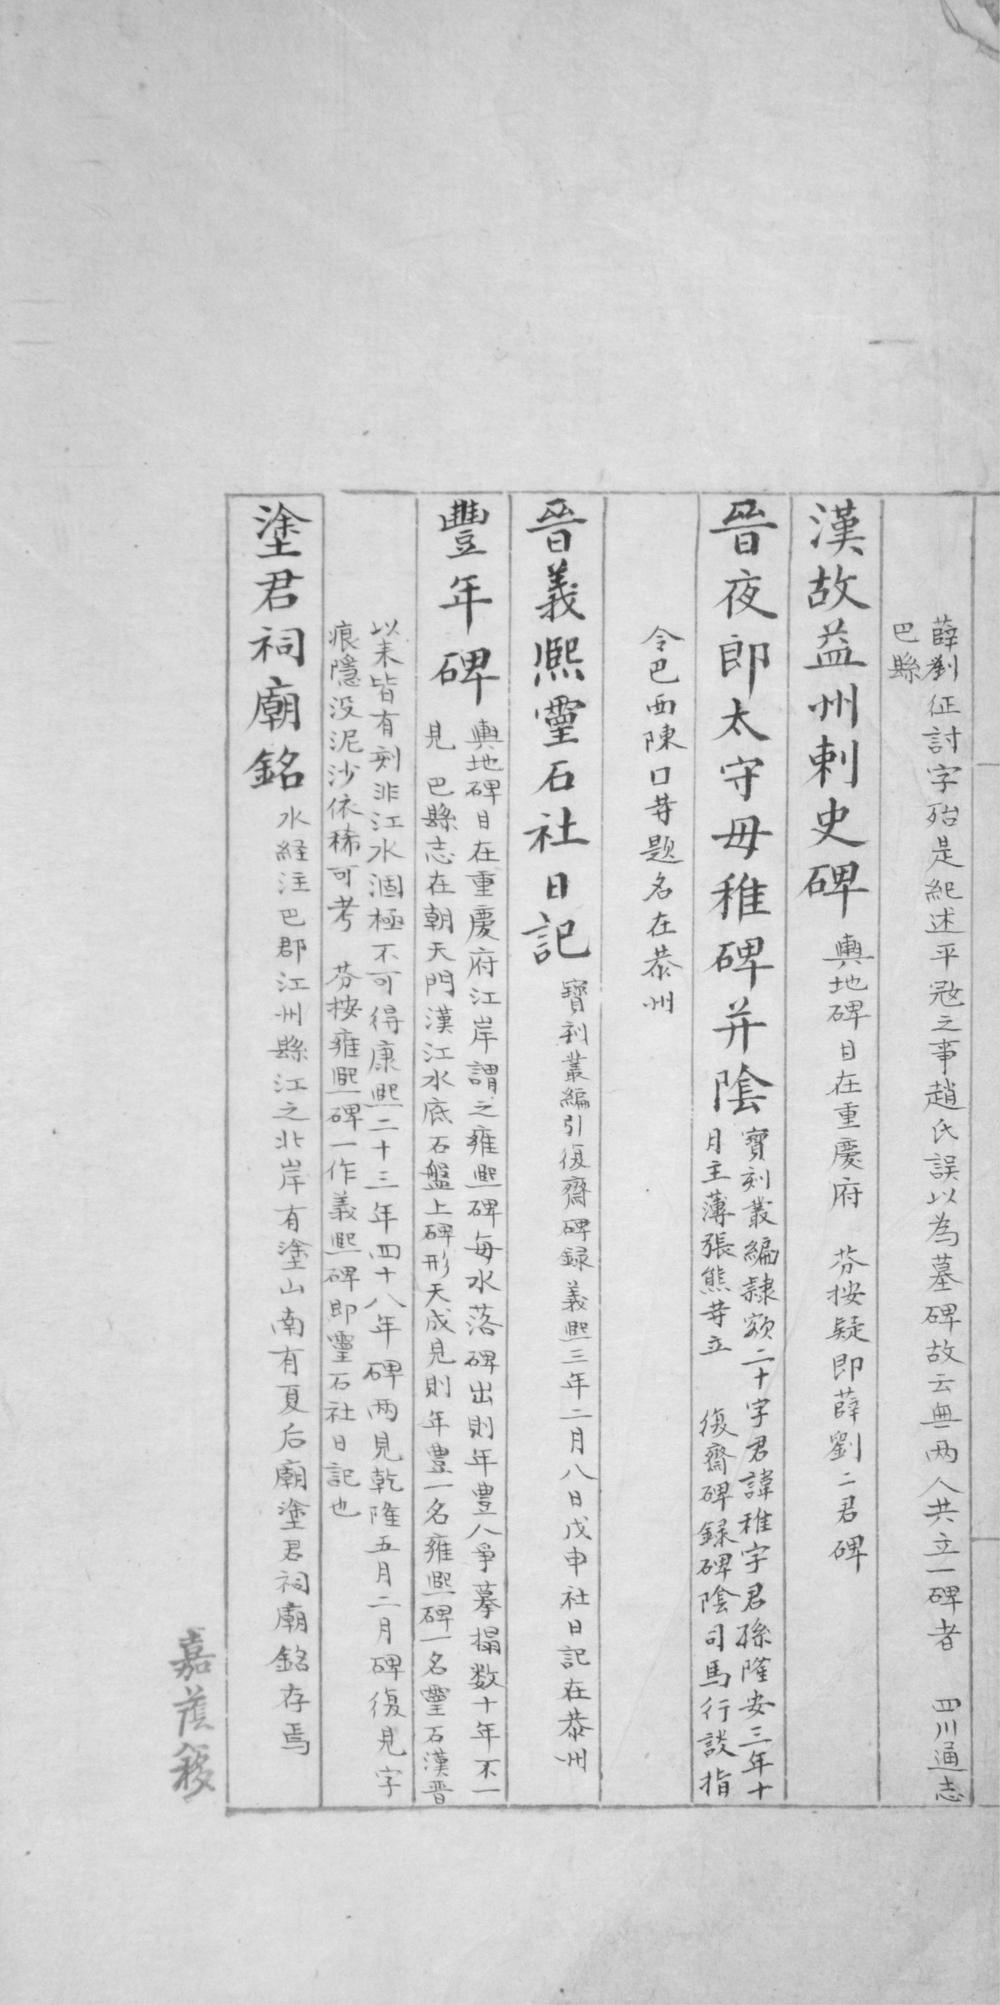 薛劉征討字殆是紀述平寇之事趙氏誤以為墓碑故云無两人共立一碑者　四川通志
巴縣
漢故益州刺史碑　輿地碑目在重慶府　芬按疑即薛劉二君碑
晉夜郎太守毋稚碑并陰　寶刻叢編隷額二十字君諱稚字君孫隆安三年十
月主薄張熊䓁立　復齋碑録碑陰司馬行談指
令巴西陳口䓁題名在恭州
晉義熙靈石社日記　寳刻叢編引復齋碑録義熙三年二月八日戊申社日記在恭州
豐年碑　輿地碑目在重慶府江岸謂之雍熙碑每水落碑出則年豊人爭摹搨数十年不一
見　巴縣志在朝天門漢江水底石盤上碑形天成見則年豊一名雍熙碑一名靈石漢晉
以来皆有刻非江水涸極不可得康熙二十三年四十八年碑两見乾隆五月二月碑復見字
痕隱没泥沙依稀可考　芬按雍熙碑一作義熙碑即靈石社日記也
塗君祠廟銘　水経注巴郡江州縣江之北岸有塗山南有夏后廟塗君祠廟銘存焉
嘉蔭簃